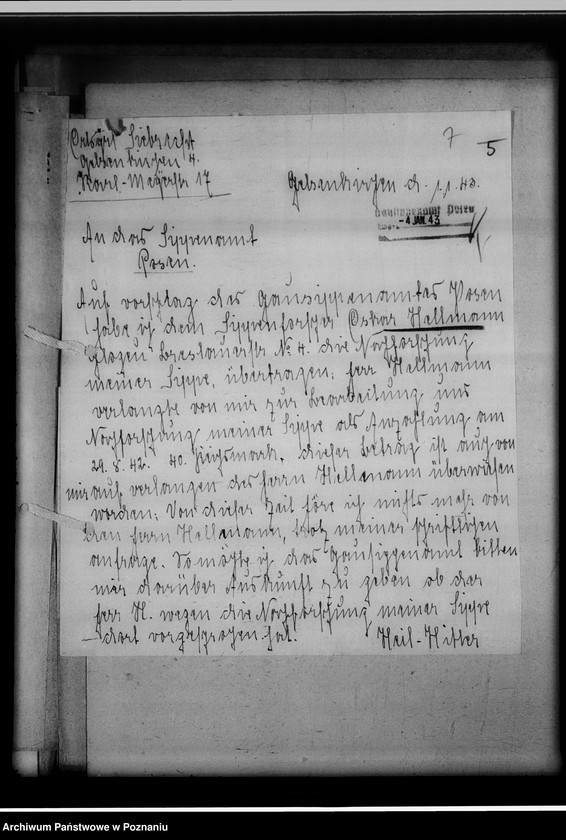 7
5
Siebrecht
Gelsenkirchen 4.
Karl-Meyerstr 17
Gelsenkirchen d. 1.1.43.
Gausippenamt Posen
-4.JAN.43
An das Sippenamt
Posen.
Auf vorschlag des Gausippenamtes Posen
habe ich dem Sippenforscher Oskar Hellmann
Glogau Breslauerstr No 4. die Nachforschung
meiner Sippe, übertragen; herr Hellmann
verlangte von mir zur Bearbeitung und
Nachforschung meiner Sippe als Anzahlung am
28.8.42. 40. Reichsmark. dieser Betrag ist auch von
mir auf verlangen des herrn Hellmann überwiesen
worden; Von dieser Zeit höre ich nichts mehr von
den herrn Hellmann, trotz meiner schriftlichen
anfrage. So möchte ich das Gausippenamt bitten
mir darüber Auskunft zu geben ob der
herr H. wegen die Nachforschung meiner Sippe
dort vorgesprochen hat. Heil-Hitler
Archiwum Państwowe w Poznaniu